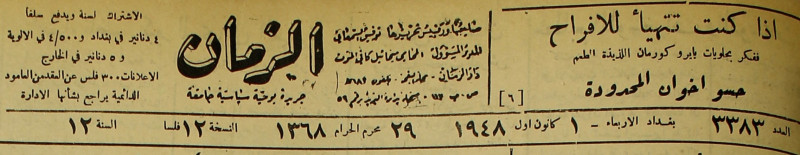 اذا كنت تتهيأ للافراح
ففكر بحلويات بايرو كورمان اللذيذة الطعم
حسو اخوان المحدودة
[٦]
صاحبها ورئيس تحريرها توفيق السمعاني
المدير المسؤول: المحامي
الزمان
جريدة يومية سياسية جامعة
الاشتراك لسنة ويدفع سلفا
٤ دنانير في بغداد و ٤/٥٠٠ في الالوية
و ٥ دنانير في الخارج
الاعلانات ٣٠٠ فلس عن العقد من العامود
الدائمية يراجع بشأنها الادارة
العدد ٣٣٨٣ بغداد الاربعاء - ١ كانون اول ١٩٤٨ ٢٩ محرم الحرام ١٣٦٨ النسخة ١٢ فلسا السنة ١٢